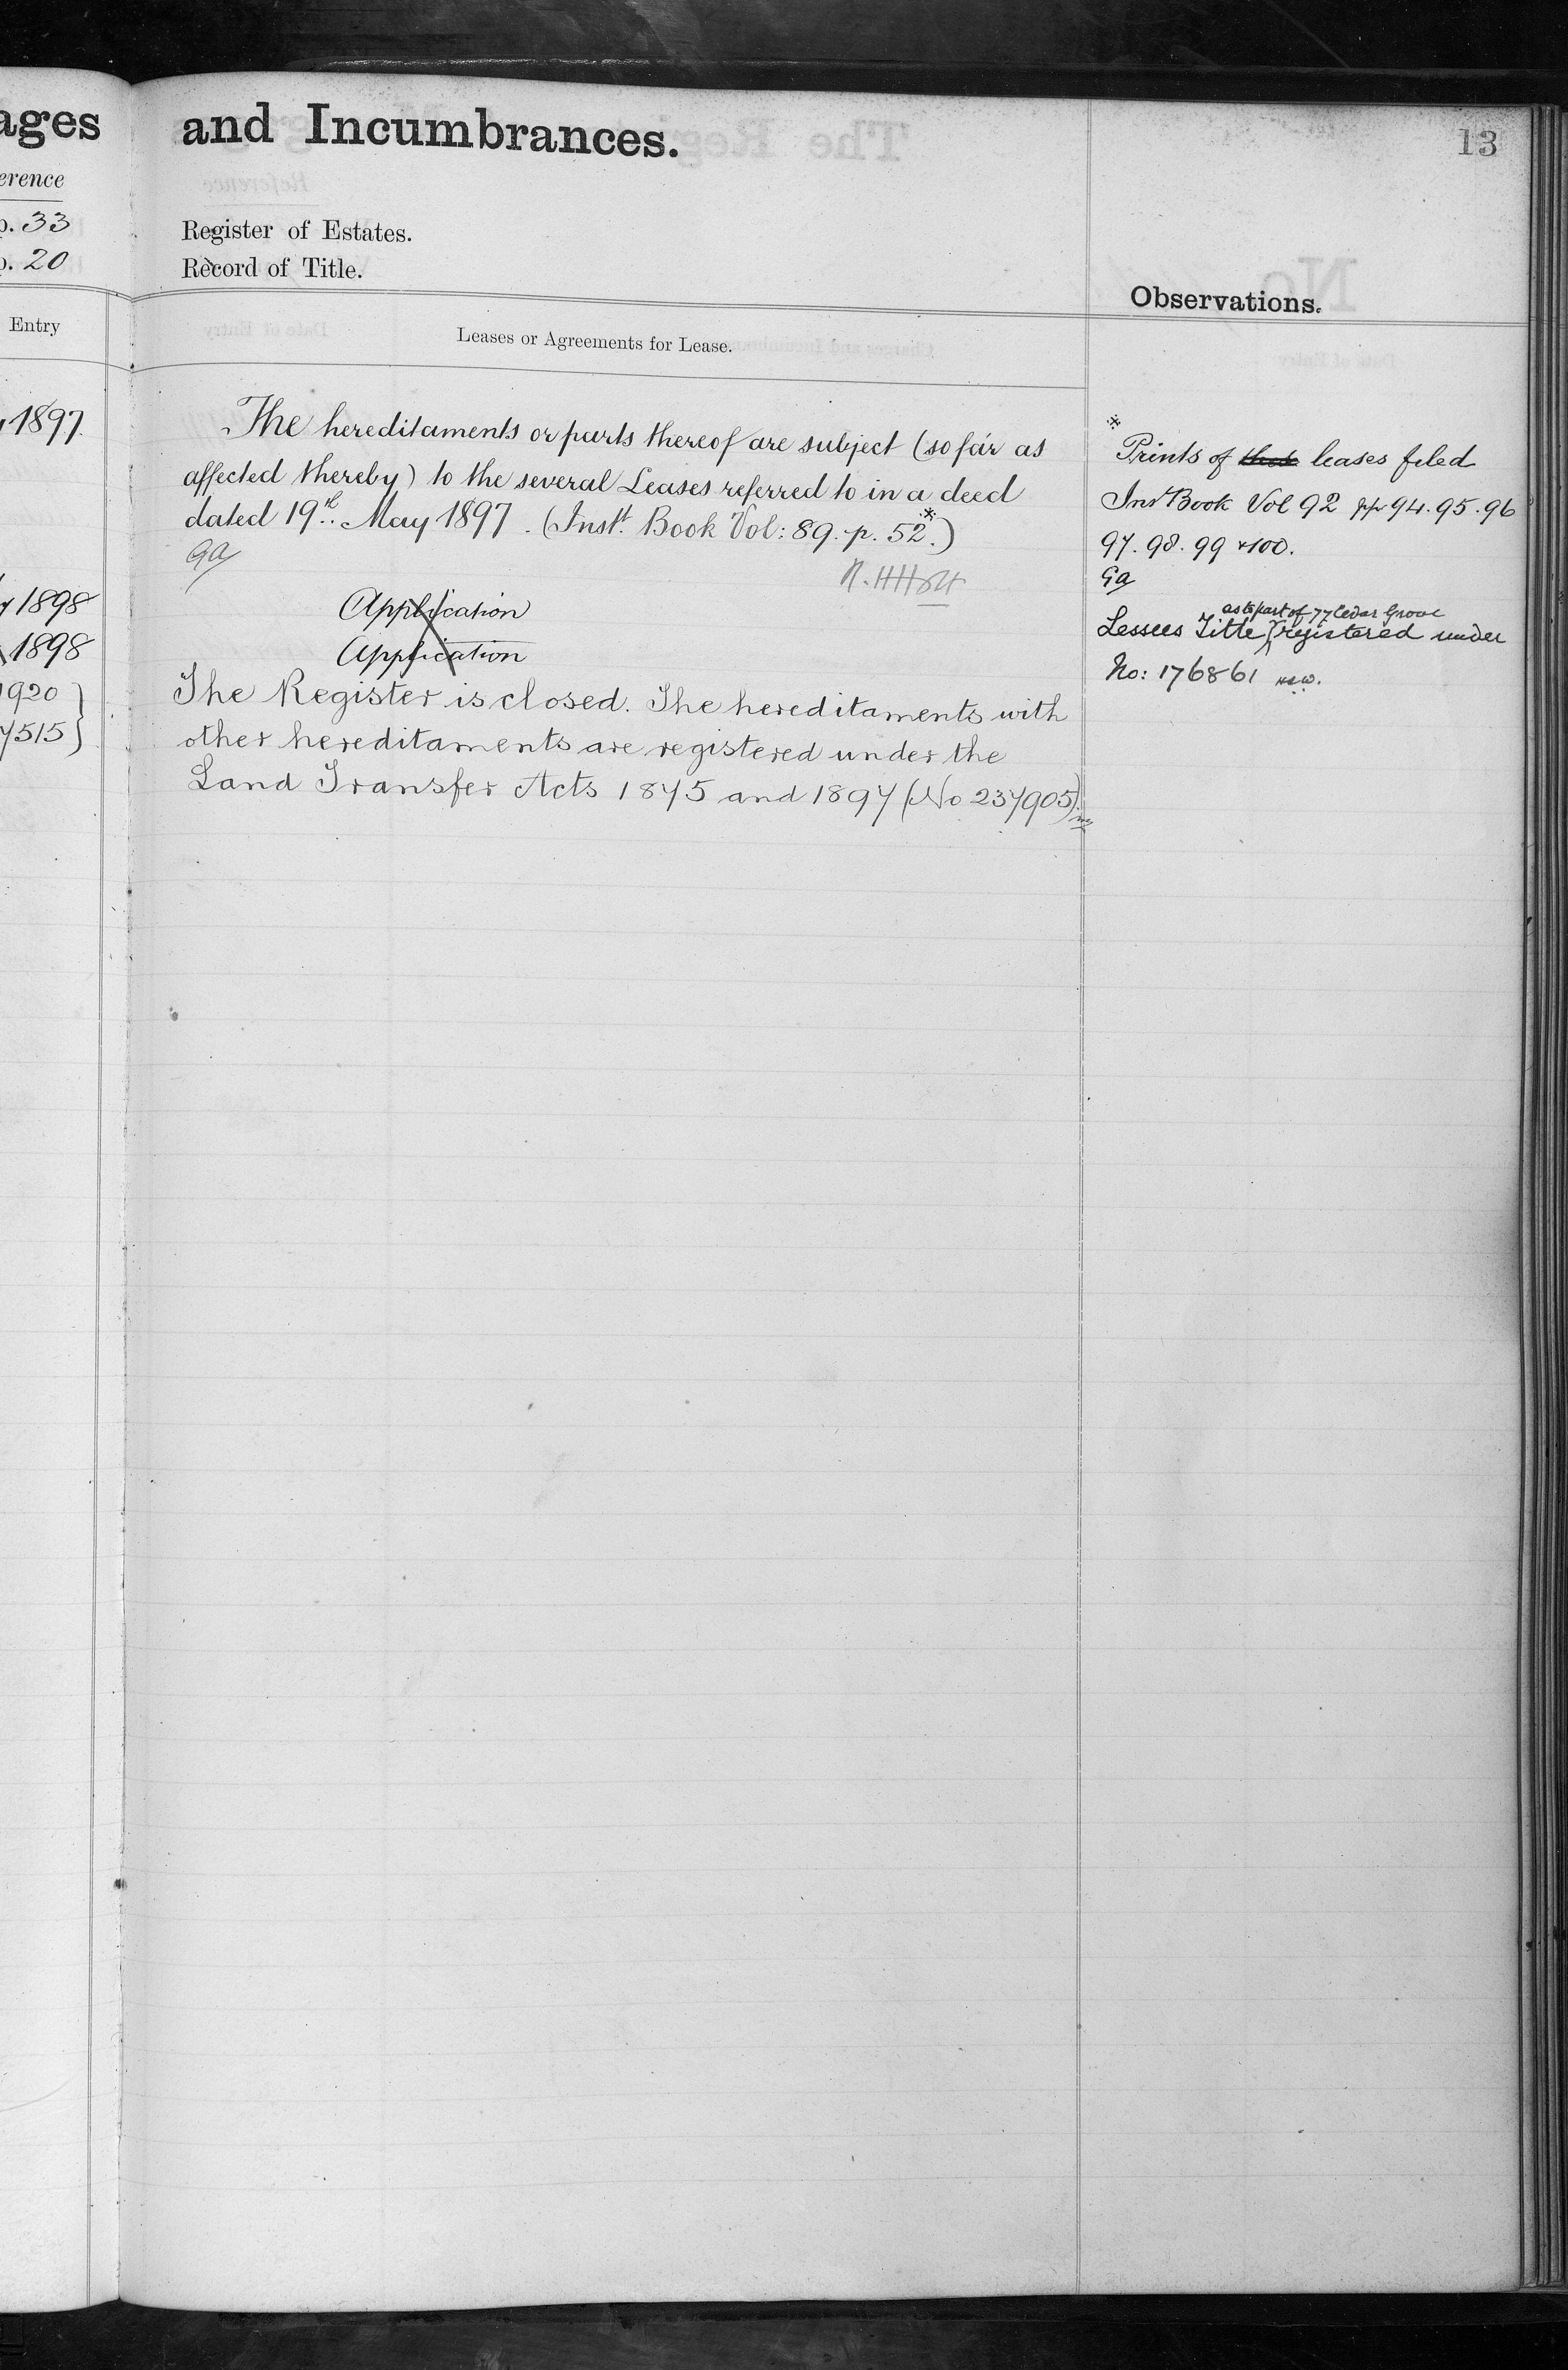 ages and Incumbrances. 13
erence
p. 33 Register of Estates.
p. 20 Record of Title.
Observations.
Entry Leases or Agreements for Lease.
1897 The hereditaments or parts thereof are subject (so far as
affected thereby) to the several Leases referred to in a deed
dated 19th. May 1897. (Instt. Book Vol: 89. p. 52.*)
GA
Application
Application
The Register is closed. The hereditaments with
other hereditaments are registered under the
Land Transfer Acts 1875 and 1897 (No 237905)
1898
1898
1920
7515
*
Prints of leases filed
Inst Book Vol 92 pp 94. 95. 96
97. 98. 99 & 100.
Ga
as to part of 77 Cedar Grove
Lessees Title registered under
No: 176861